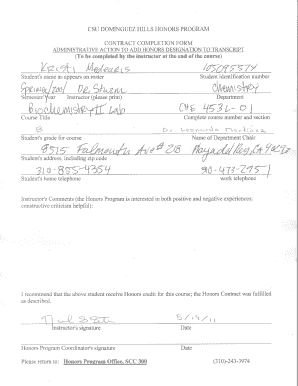 CSU DOMINGUEZ HILLS HONORS PROGRAM
CONTRACT COMPLETION FORM
ADMINISTRATIVE ACTION TO ADD HONORS DESIGNATION TO TRANSCRIPT
(To be completed by the instructor at the end of the course)
Kristi
Student's name as appears on roster Student identification number
Spring/2001 De Sturm Chemistry
Semester/year Instructor (please print) Department
Biochemistry II Lab CHE 453L-01
Course Title Complete course number and section
B Dr. Leonardo Martinez
Student's grade for course Name of Department Chair
8515 Falmouth Ave # 218 Playa del Rey, CA
Student's address, including zip code
310-855-4354
Student's home telephone work telephone
Instructor's Comments (the Honors Program is interested in both positive and negative experiences;
constructive criticism helpful):
I recommend that the above student receive Honors credit for this course; the Honors Contract was fulfilled
as described.
Instructor's signature Date
Honors Program Coordinator's signature Date
Please return to: Honors Program Office, SCC 300 (310)-243-3974